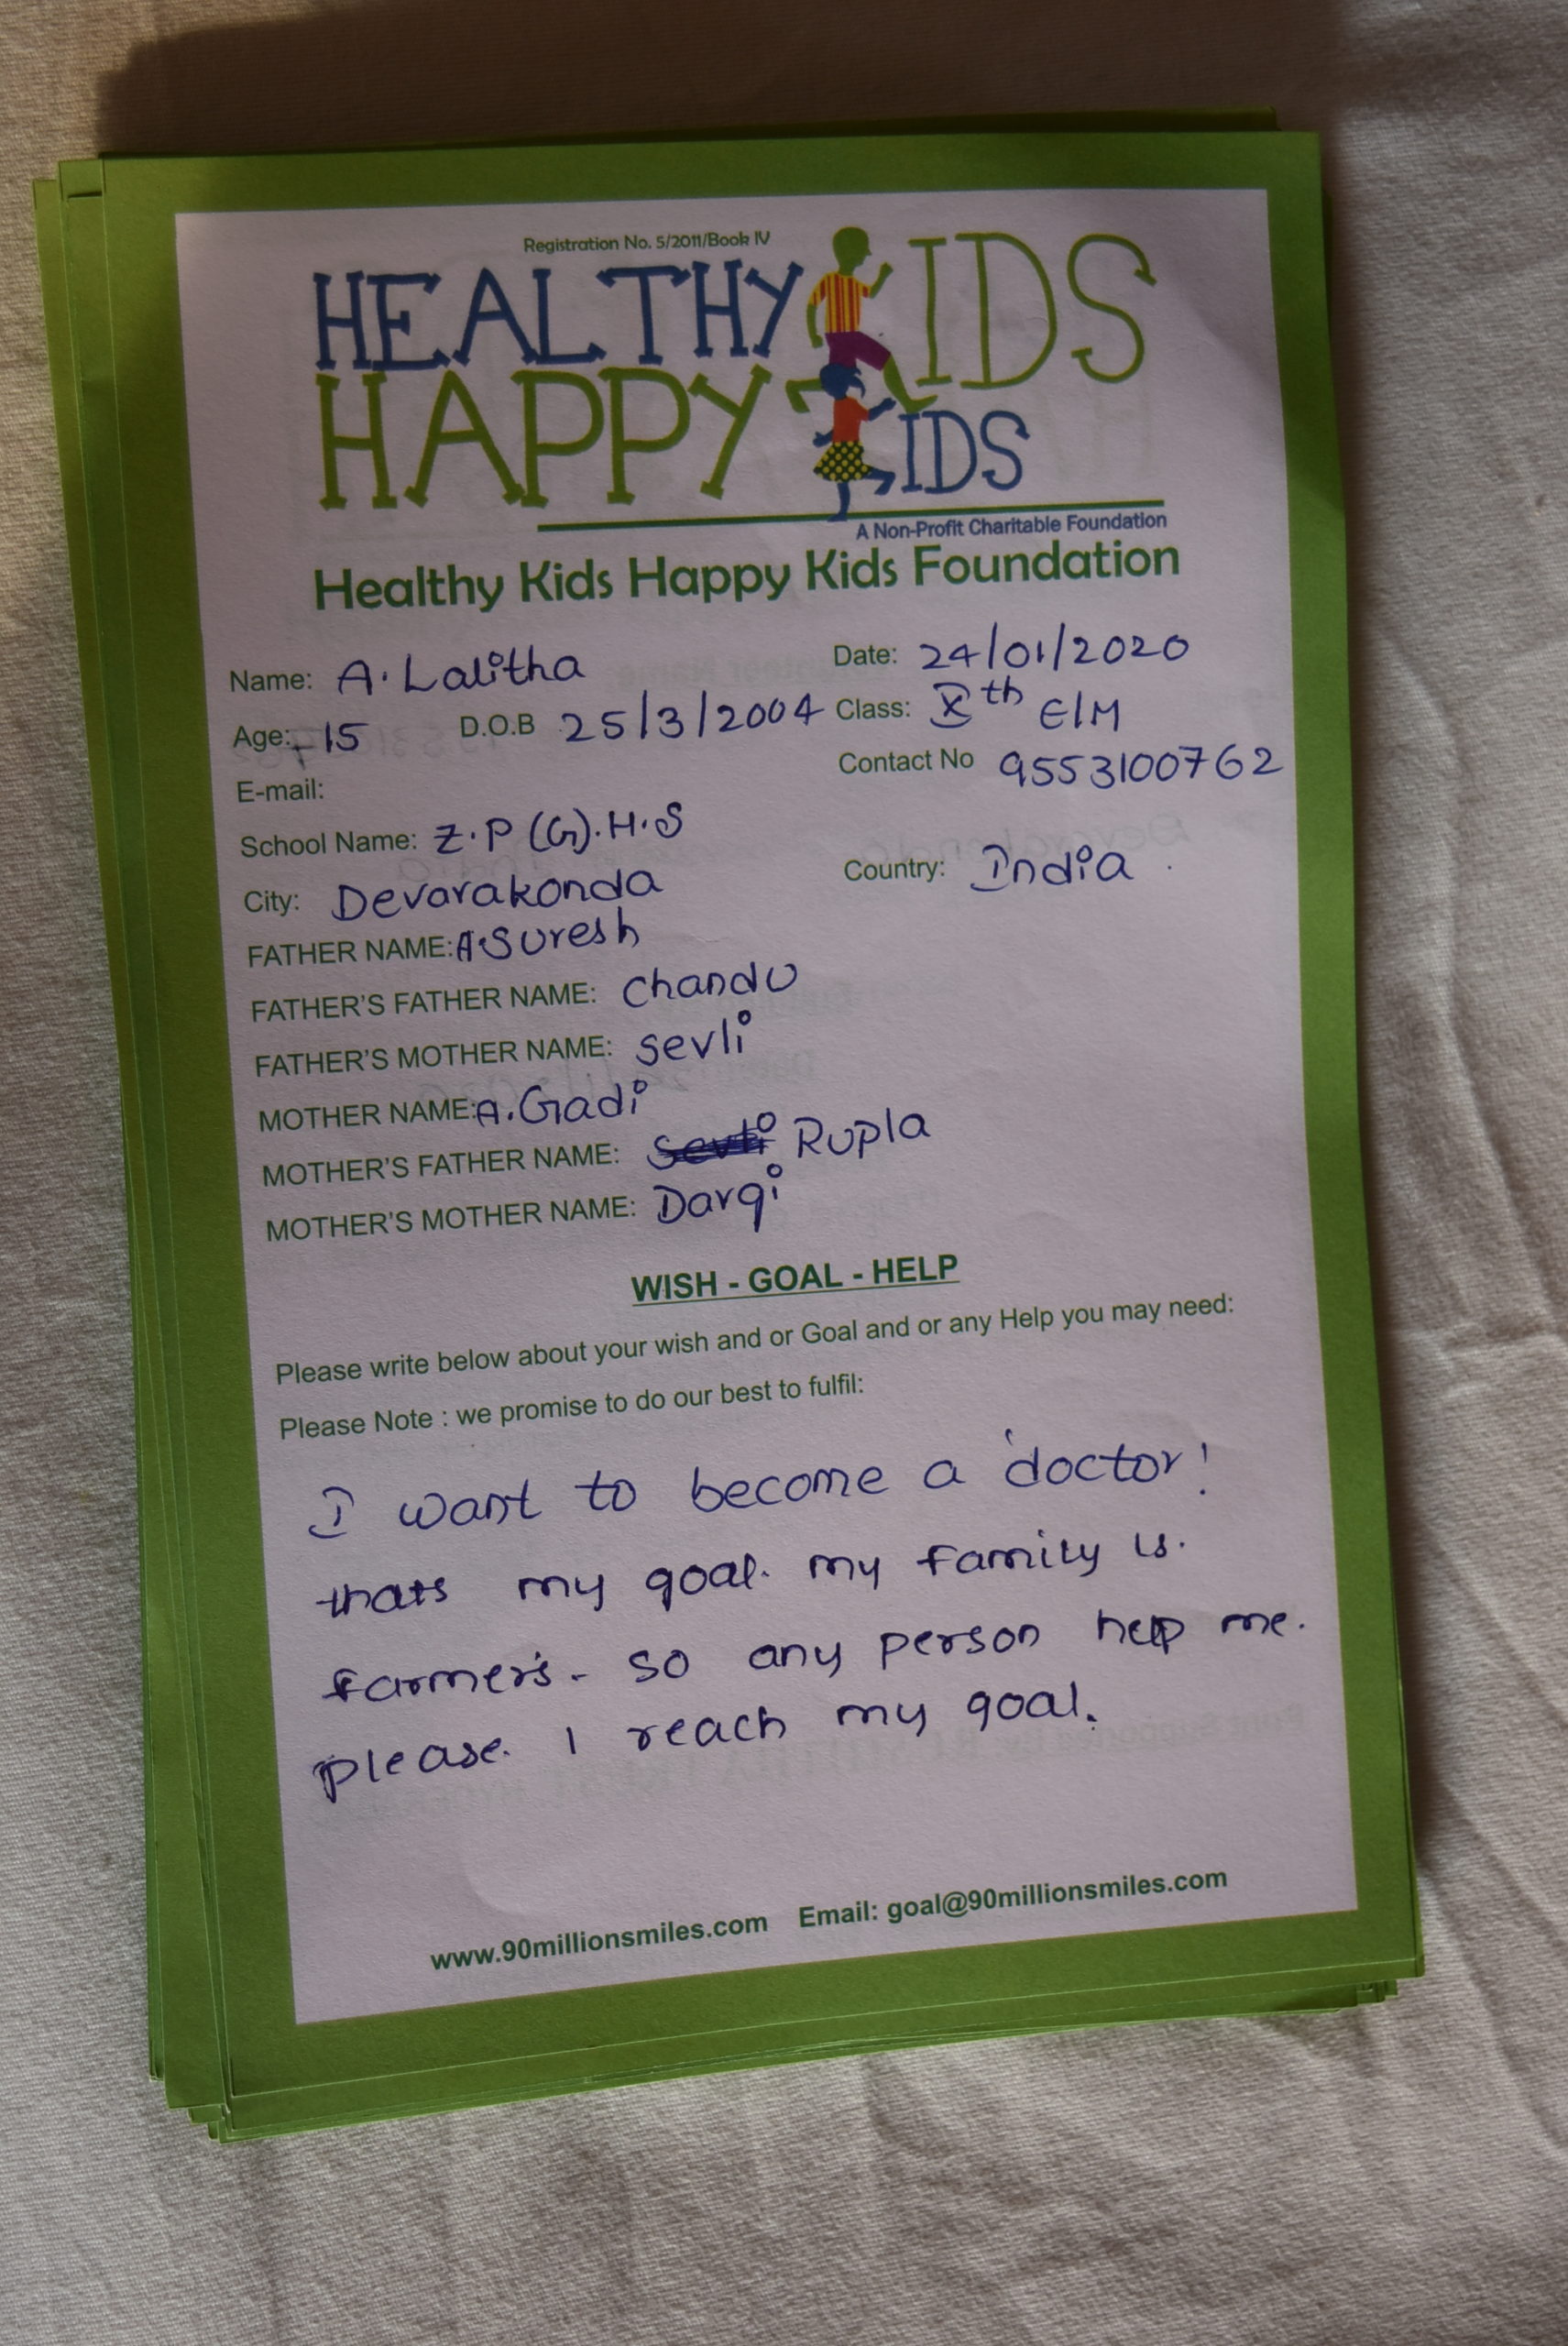 Registration No. 5/2011/Book IV
HEALTHY KIDS
HAPPY KIDS
A Non-Profit Charitable Foundation
Healthy Kids Happy Kids Foundation
Name: A. Lalitha Date: 24/01/2020
Age: 15 D.O.B 25/3/2004 Class: Xth E/M
E-mail: Contact No 9553100762
School Name: Z.P (G).H.S
City: Devarakonda Country: India
FATHER NAME: A.Suresh
FATHER'S FATHER NAME: Chandu
FATHER'S MOTHER NAME: Sevli
MOTHER NAME: A.Gadi
MOTHER'S FATHER NAME: Sevli Rupla
MOTHER'S MOTHER NAME: Dargi
WISH - GOAL - HELP
Please write below about your wish and or Goal and or any Help you may need:
Please Note : we promise to do our best to fulfil:
I want to become a 'doctor!
thats my goal. my family is.
farmer's. so any person help me.
please. I reach my goal.
www.90millionsmiles.com Email: goal@90millionsmiles.com